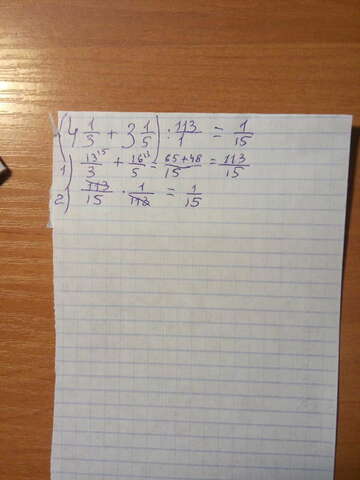 (4 1/3 + 3 1/5) : 113/1 = 1/15
1) 13^5/3 + 16^3/5 = 65+48/15 = 113/15
2) 113/15 · 1/113 = 1/15